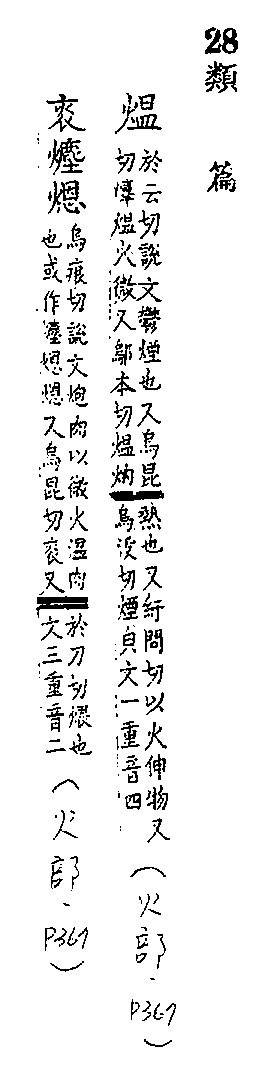 28 類 篇
熅
於云切說文鬱煙也又烏昆
切熅火微又鄔本切熅炳
熱也又紆問切以火伸物又
烏没切煙皃文一重音四
(火部.P367)
煾
烏痕切說文炮肉以微火温肉
也或作煾又烏昆切又
於刀切煨也
文三重音二
(火部.P367)